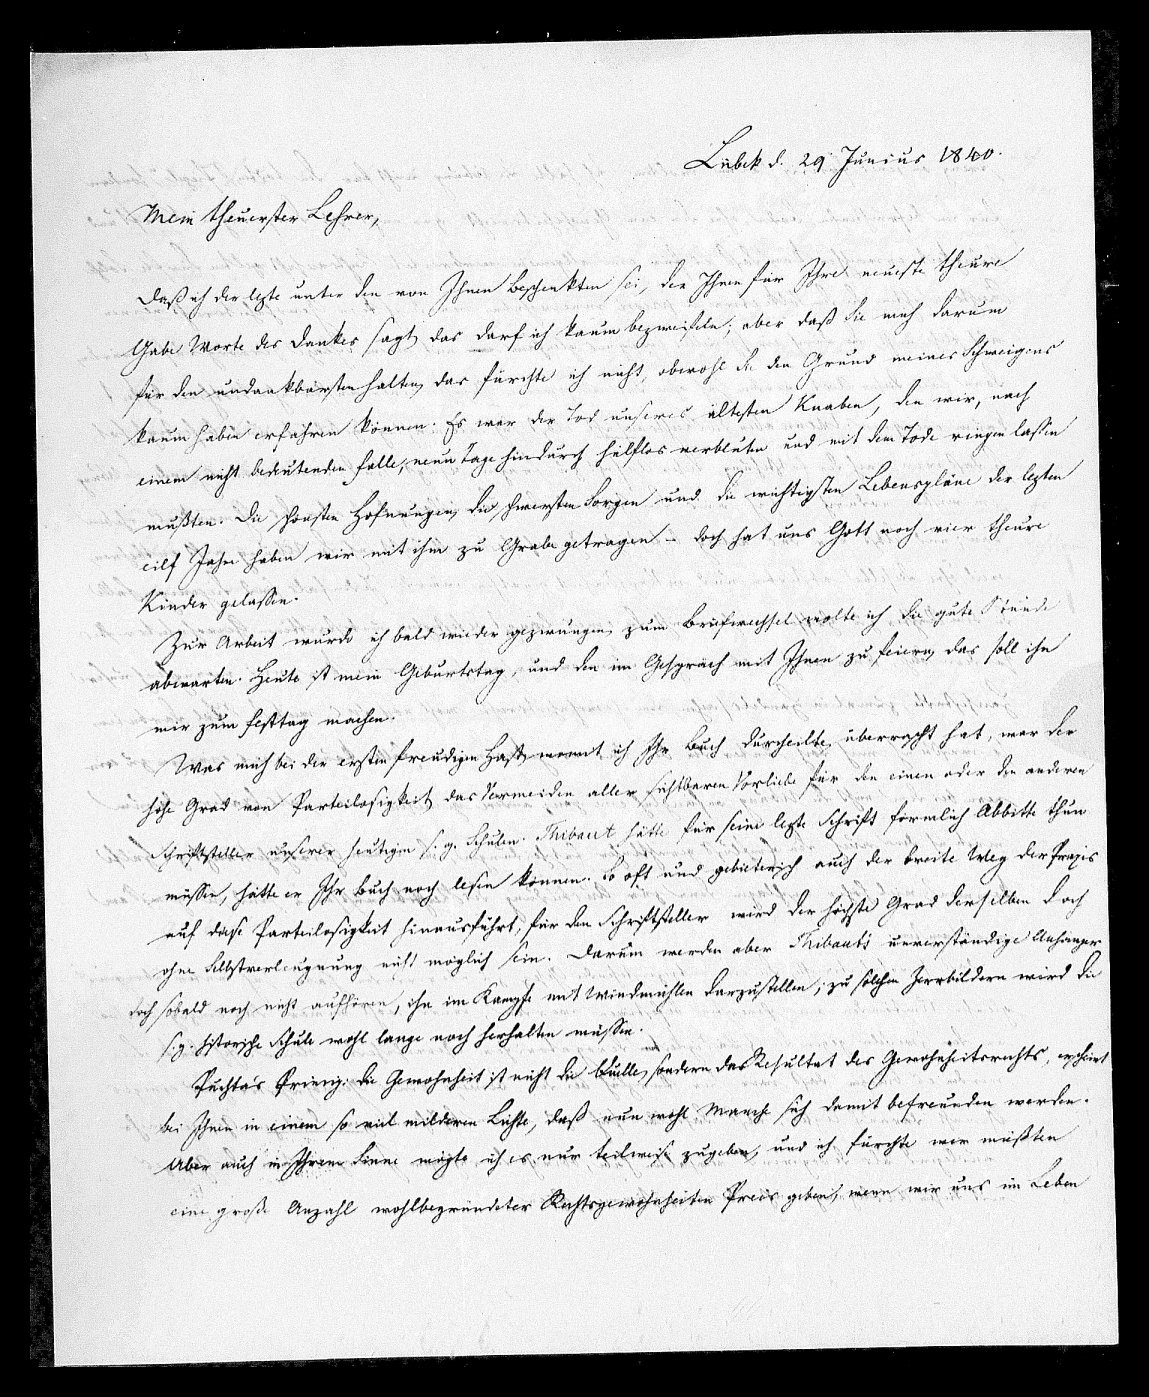 Lübek d. 29 Junius 1840.
Mein theuerster Lehrer,
Daß ich der lezte unter den von Ihnen Beschenkten sei, der Ihnen für Ihre neueste theure
Gabe Worte des Dankes sagt, das darf ich kaum bezweifeln; aber daß Sie mich darum
für den undankbarsten halten, das fürchte ich nicht, obwohl Sie den Grund meines Schweigens
kaum haben erfahren können. Es war der Tod unseres ältesten Knaben, den wir, nach
einem nicht bedeutenden Falle, neun Tage hindurch hülflos verbluten und mit dem Tode ringen lassen
mußten. Die schönsten Hofnungen, die schwersten Sorgen und die wichtigsten Lebenspläne der lezten
eilf Jahre haben wir mit ihm zu Grabe getragen – doch hat uns Gott noch vier theure
Kinder gelassen.
Zur Arbeit wurde ich bald wieder gezwungen, zum Briefwechsel wolte ich die gute Stunde
abwarten. Heute ist mein Geburtstag, und den im Gespräch mit Ihnen zu feiern, das soll ihn
mir zum Festtag machen.
Was mich bei der ersten freudigen Hast, womit ich Ihr Buch durcheilte, überrascht hat, war der
hohe Grad von Parteilosigkeit, das Vermeiden aller sichtbaren Vorliebe für den einen oder den anderen
Schriftsteller unserer heutigen s. g. Schulen. Thibaut hätte für seine lezte Schrift förmlich Abbitte thun
müssen, hätte er Ihr Buch noch lesen können. So oft und gebieterisch auch der breite Weg der Praxis
auf diese Parteilosigkeit hinausführt, für den Schriftsteller wird der höchste Grad derselben doch
ohne Selbstverleugnung nicht möglich sein. Darum werden aber Thibauts unverständige Anhänger
doch sobald noch nicht aufhören, ihn im Kampfe mit Windmühlen darzustellen; zu solchen Zerrbildern wird die
s. g. historische Schule wohl lange noch herhalten müssen.
Puchta's Prinzip: die Gewohnheit ist nicht die Quelle, sondern das Resultat des Gewohnheitsrechts, erscheint
bei Ihnen in einem so viel milderen Lichte, daß nun wohl Manche sich damit befreunden werden.
Aber auch in Ihrem Sinne mögte ich es nur teilweise zugeben, und ich fürchte wir müßten
eine große Anzahl wohlbegründeter Rechtsgewohnheiten Preis geben, wenn wir uns im Leben